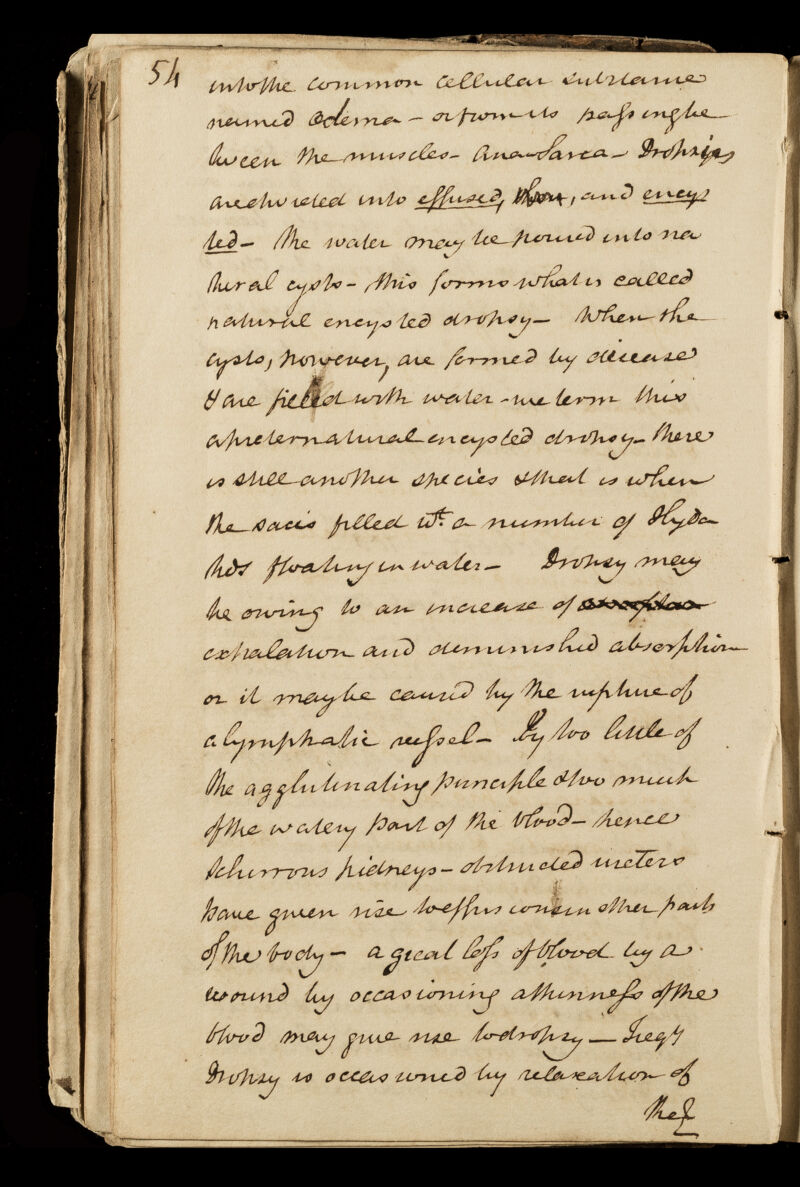 54
into the common cellular substance
named Œdema - or from its passing be
tween the muscles - Anasarca - Dropsies
are divided into effused, and encys
ted - The water may be poured into na
tural cysts - this forms what is called
natural encysted dropsy - When the
cysts, however, are formed by disease
& are filled with water - we term this
a preternatural encysted dropsy - There
is still another species & that is when
the sac is filled wt. a number of Hyda
tids floating in water - Dropsy may
be owing to an increase of
exhalation and diminished absorption
or it may be caused by the rupture of
a lymphatic vessel - By too little of
the agglutinating principle & too much
of the watery part of the blood - hence
schirrous kidneys - obstructed ureters
have given rise to effusions in other parts
of the body - a great loss of blood by a
wound by occasioning a thinness of the
blood may give rise to dropsy - Freqy
Dropsy is occasioned by relaxation of
the